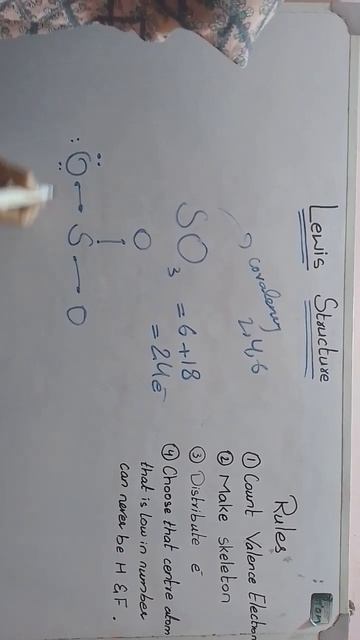 Lewis Structure
covalency
2,4,6
SO3 = 6+18
= 24e-
O
:Ö-S-O
Rules
① Count Valence
② Make Skeleton
③ Distribute e-
④ Choose that centre atom
that is low in number
can never be H & F.